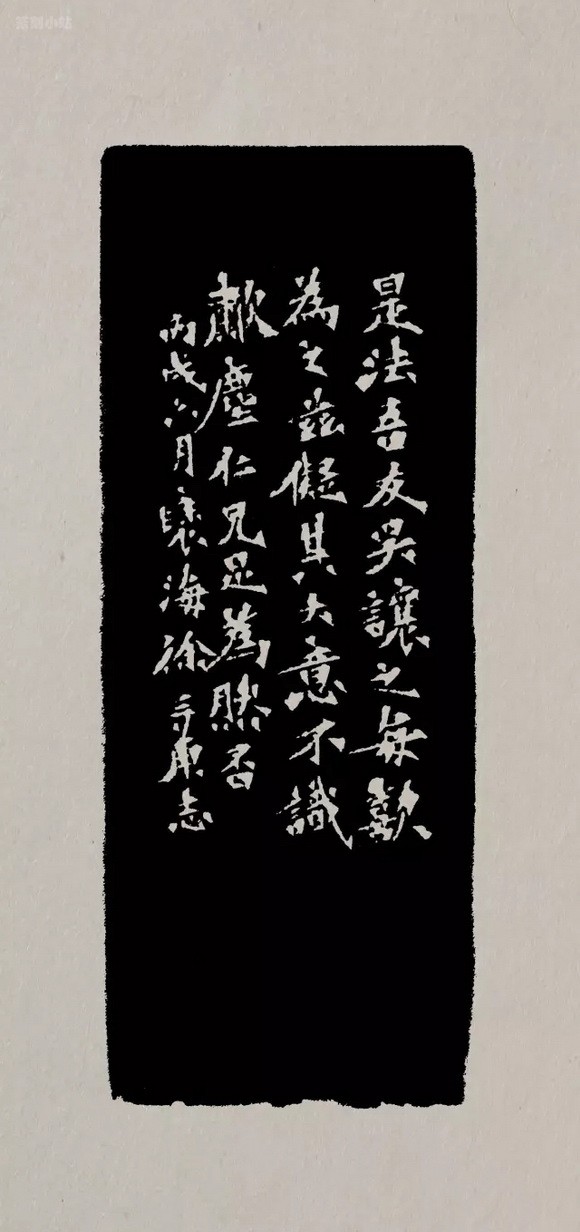 篆刻小站
是法吾友吳讓之每歡
為之茲儗其大意不識
歗塵仁兄足為然否
丙戌六月褎海徐三庚志